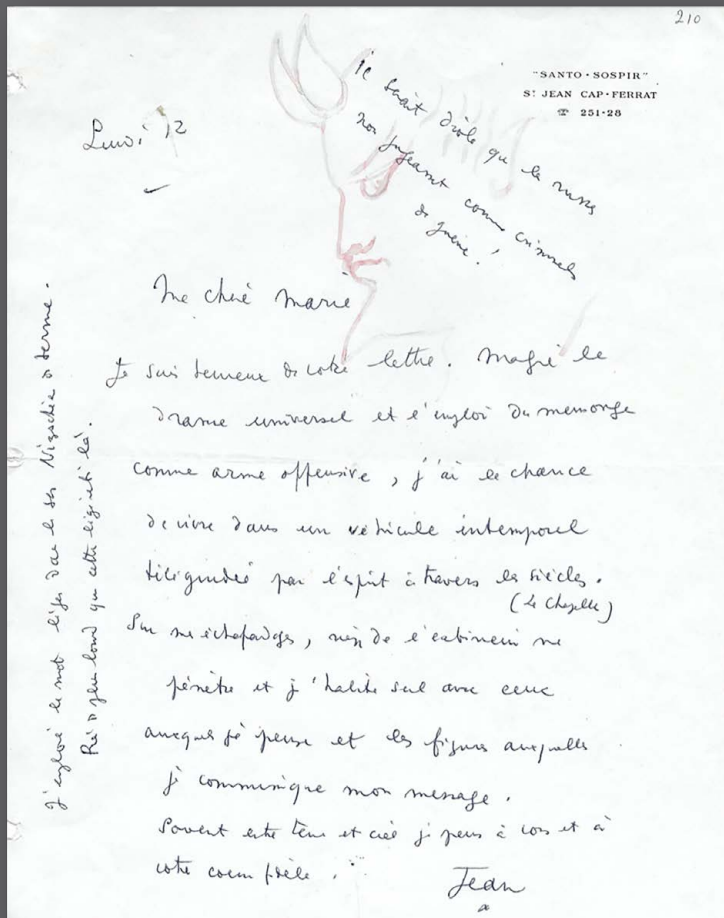 210
"SANTO • SOSPIR"
St JEAN CAP-FERRAT
☎ 251-28
Lundi 12
il serait drôle que les russes
nous jugeassent comme criminels
de guerre !
Ma chère Marie
Je suis heureux de votre lettre. Malgré le
drame universel et l'emploi du mensonge
comme arme offensive, j'ai la chance
de vivre dans un véhicule intemporel
téléguidé par l'esprit à travers les siècles.
(la Chapelle)
Sur mes échafaudages, rien de l'extérieur ne
pénètre et j'habite seul avec ceux
auxquels je pense et les figures auxquelles
je communique mon message.
Souvent entre terre et ciel je pense à vous et à
votre coeur fidèle.
Jean
J'emploie le mot léger dans le sens Nietzschéen du terme.
Rien de plus lourd que cette légèreté là.